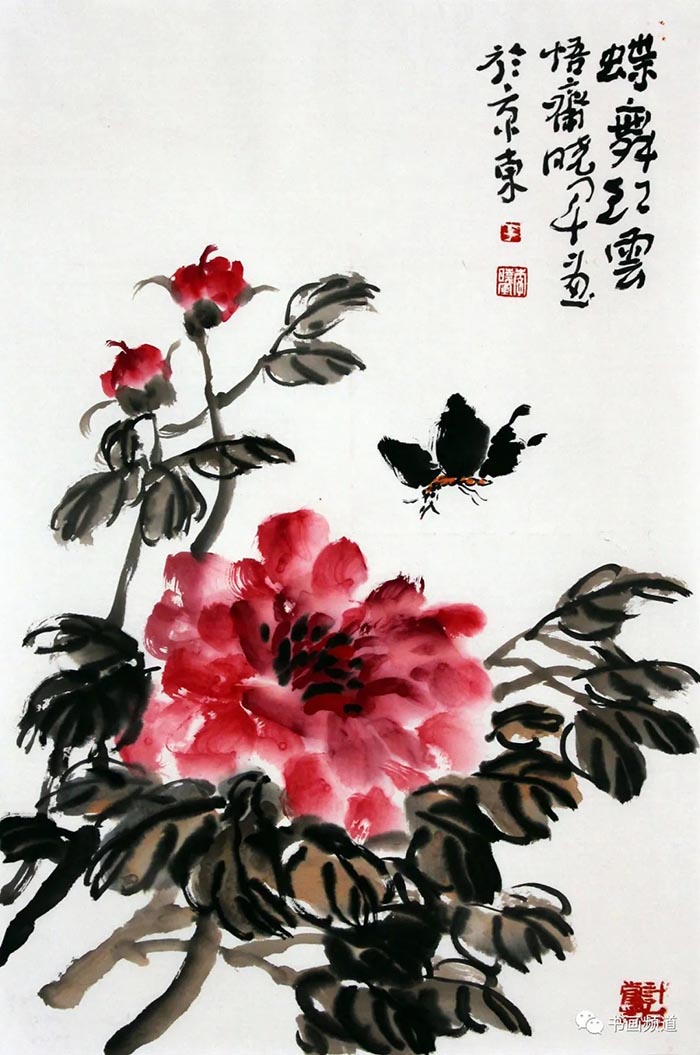 蝶舞红雲
悟齋晓军画
於京東
书画频道